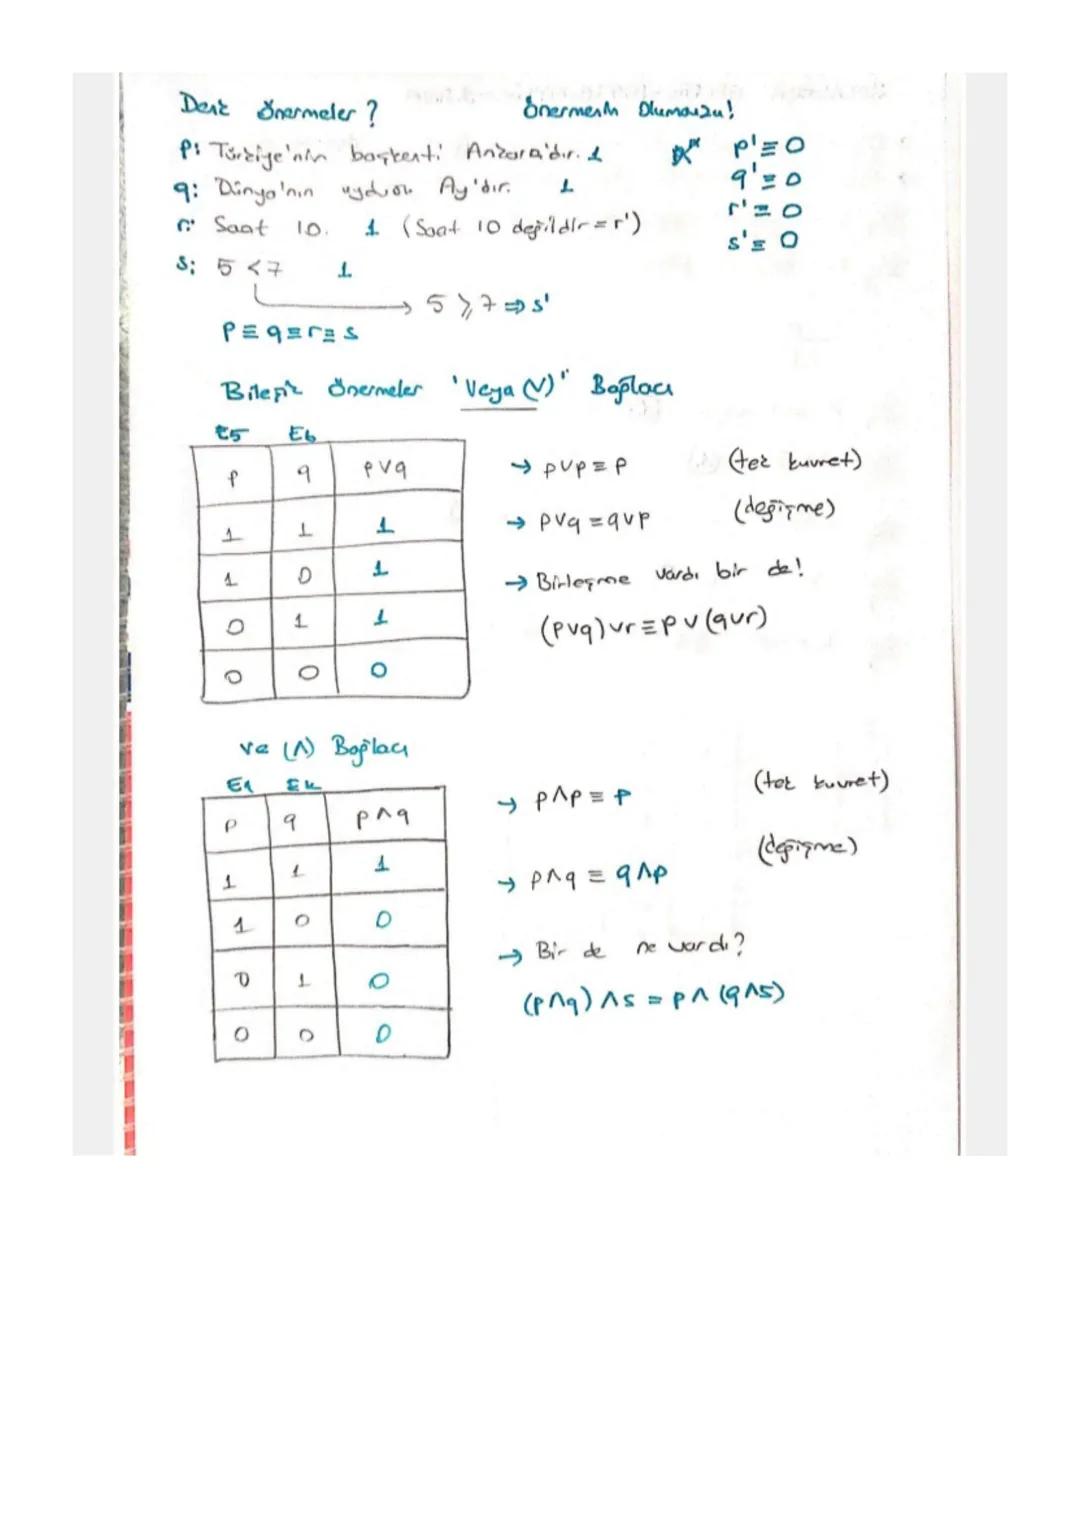 Denk Önermeler ?
Önermenin Olumsuzu!
p: Türkiye'nin başkenti Ankara'dır. 1
q: Dünya'nın uydusu Ay'dır. 1
r: Saat 10. 1 (Saat 10 değildir = r')
s: 5 < 7 1
p' ≡ 0
q' ≡ 0
r' ≡ 0
s' ≡ 0
5 ≥ 7 ⇒ s'
p ≡ q ≡ r ≡ s
Bileşik Önermeler "Veya (V)" Bağlacı
p q p∨q
1 1 1
1 0 1
0 1 1
0 0 0
→ p∨p ≡ p (tek kuvvet)
→ p∨q = q∨p (değişme)
→ Birleşme vardı bir de!
(p∨q)∨r ≡ p∨(q∨r)
ve (∧) Bağlacı
p q p∧q
1 1 1
1 0 0
0 1 0
0 0 0
→ p∧p ≡ p (tek kuvvet)
→ p∧q ≡ q∧p (değişme)
→ Bir de ne vardı?
(p∧q)∧s = p∧(q∧s)